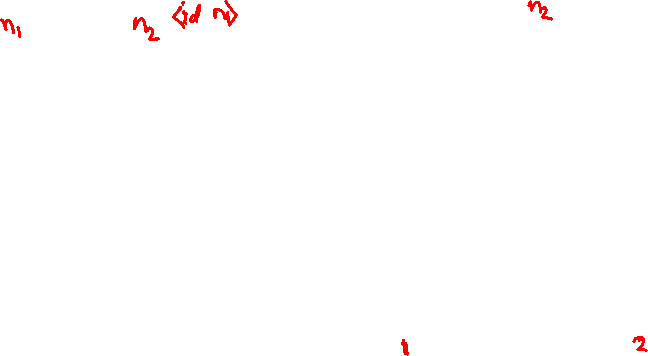 n₁ n₂ <id n₁> n₂
1 2